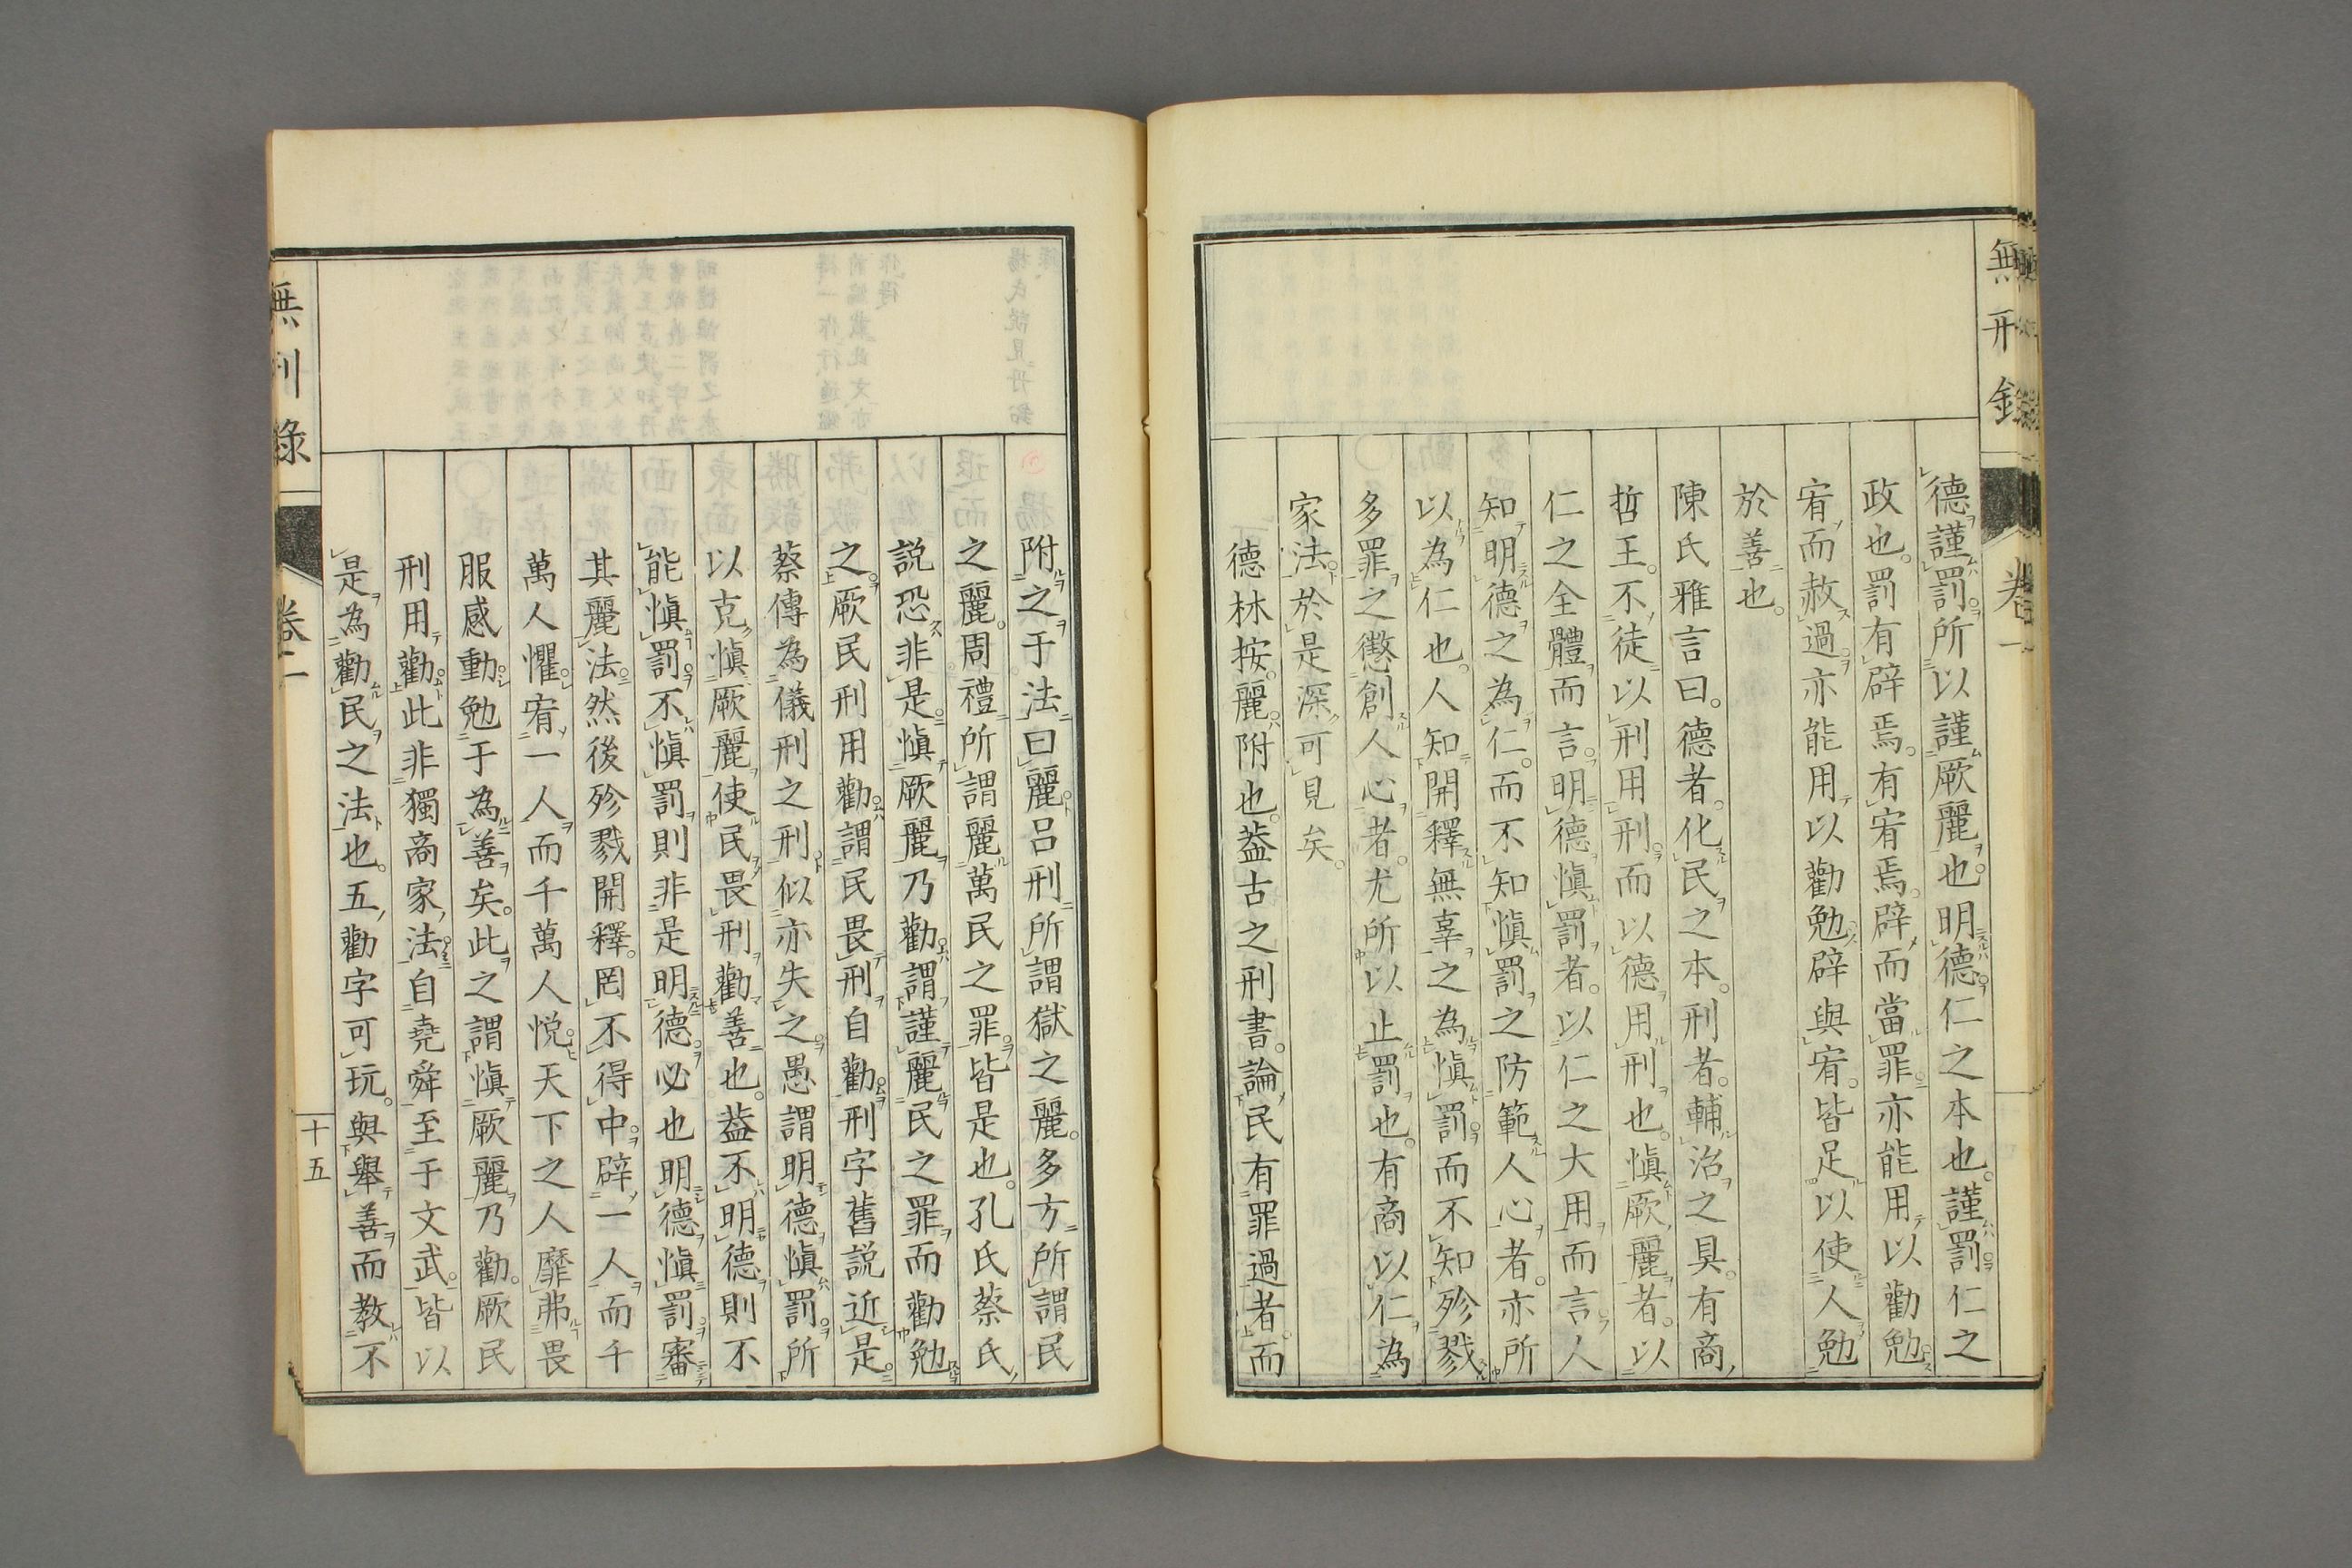 無刑錄
卷一
德謹罰所以謹厥麗也。明德仁之本也。謹罰仁之
政也。罰有辟焉。有宥焉。辟而當罪亦能用以勸勉
宥而赦過亦能用以勸勉辟與宥。皆足以使人勉
於善也。
陳氏雅言曰。德者。化民之本。刑者。輔治之具。有商
哲王。不徒以刑用刑而以德用刑也。愼厥麗者。以
仁之全體而言。明德愼罰者。以仁之大用而言人
知明德之為仁。而不知愼罰之防範人心者。亦所
以為仁也。人知開釋無辜之為愼罰而不知殄戮
多罪之懲創人心者。尤所以止罰也。有商以仁為
家法於是深可見矣。
德林按。麗附也。葢古之刑書。論民有罪過者。而
附之于法曰麗呂刑所謂獄之麗。多方所謂民
之麗。周禮所謂麗萬民之罪。皆是也。孔氏蔡氏
説恐非是愼厥麗乃勸謂謹麗民之罪而勸勉
之。厥民刑用勸謂民畏刑自勸刑字舊説近是。
蔡傳為儀刑之刑似亦失之。愚謂明德愼罰。所
以克愼厥麗使民畏刑勸善也。葢不明德則不
能愼罰不愼罰則非是明德。必也明德愼罰審
其麗法然後殄戮開釋。罔不得中。辟一人而千
萬人懼。宥一人而千萬人悦。天下之人靡弗畏
服感動勉于為善矣。此之謂愼厥麗乃勸。厥民
刑用勸此非獨商家法自堯舜至于文武皆以
是為勸民之法也。五勸字可玩。與舉善而教不
無刑錄
卷一
十五